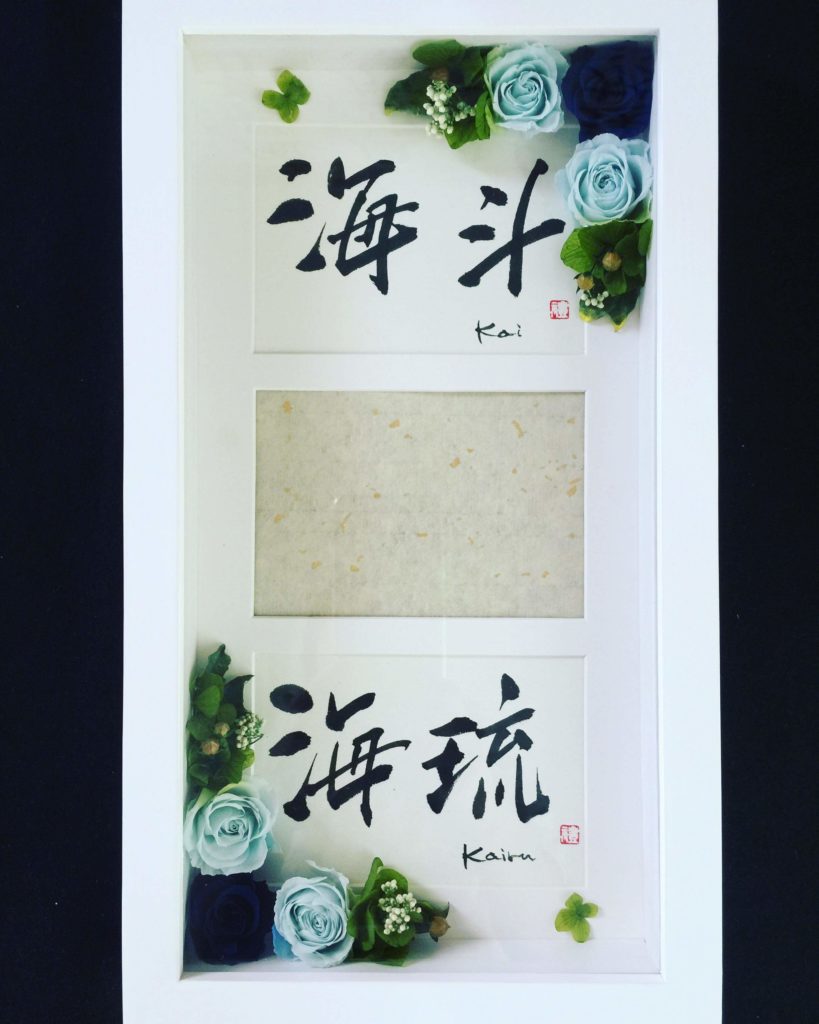 海斗
Kai
海琉
Kairu